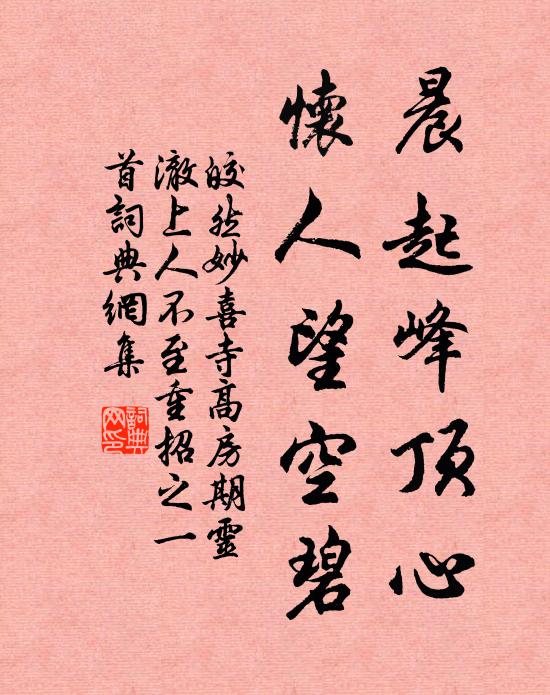 晨起峰頂心
懷人望空碧
皎然妙喜寺高房期靈
澈上人不至重招之一
首詞典網集
詞典
网印